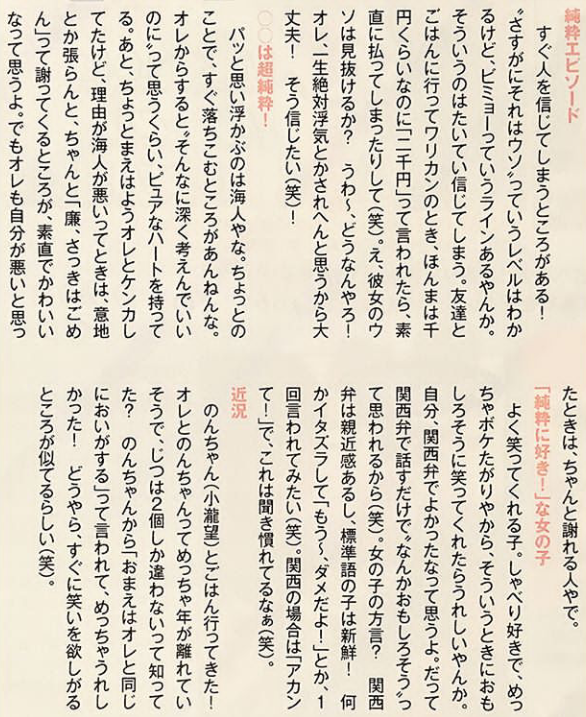 純粋エピソード
すぐ人を信じてしまうところがある！
“さすがにそれはウソ”っていうレベルはわか
るけど、ビミョーっていうラインあるやんか。
そういうのはたいてい信じてしまう。友達と
ごはんに行ってワリカンのとき、ほんまは千
円くらいなのに「二千円」って言われたら、素
直に払ってしまったりして（笑）。え、彼女のウ
ソは見抜けるか？　うわ〜、どうなんやろ！
オレ、一生絶対浮気とかされへんと思うから大
丈夫！　そう信じたい（笑）！
○○は超純粋！
パッと思い浮かぶのは海人やな。ちょっとの
ことで、すぐ落ちこむところがあんねんな。
オレからすると“そんなに深く考えんでいい
のに”って思うくらい、ピュアなハートを持って
る。あと、ちょっとまえはようオレとケンカし
てたけど、理由が海人が悪いってときは、意地
とか張らんと、ちゃんと「廉、さっきはごめ
ん」って謝ってくるところが、素直でかわいい
なって思うよ。でもオレも自分が悪いと思っ
たときは、ちゃんと謝れる人やで。
「純粋に好き！」な女の子
よく笑ってくれる子。しゃべり好きで、めっ
ちゃボケたがりやから、そういうときにおも
しろそうに笑ってくれたらうれしいやんか。
自分、関西弁でよかったなって思うよ。だって
関西弁で話すだけで“なんかおもしろそう”っ
て思われるから（笑）。女の子の方言？　関西
弁は親近感あるし、標準語の子は新鮮！　何
かイタズラして「もう〜、ダメだよ！」とか、1
回言われてみたい（笑）。関西の場合は「アカン
て！」で、これは聞き慣れてるなぁ（笑）。
近況
のんちゃん（小瀧望）とごはん行ってきた！
オレとのんちゃんってめっちゃ年が離れてい
そうで、じつは2個しか違わないって知って
た？　のんちゃんから「おまえはオレと同じ
においがする」って言われて、めっちゃうれし
かった！　どうやら、すぐに笑いを欲しがる
ところが似てるらしい（笑）。